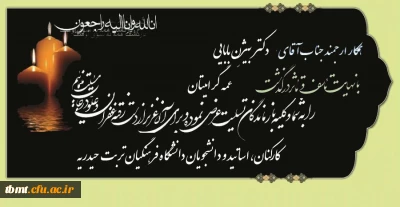 انا لله و انا الیه راجعون
همکار ارجمند جناب آقای دکتر بیژن بابایی
با نهایت تاسف و تاثر درگذشت عمه گرامیتان
را به شما و کلیه بازماندگان تسلیت عرض نموده و برای آن عزیز از دست رفته غفران
کارکنان، اساتید و دانشجویان دانشگاه فرهنگیان تربت حیدریه
tbmt.cfu.ac.ir